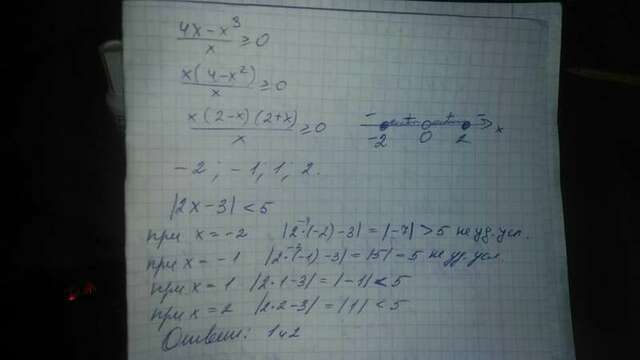 4x-x³/x ≥ 0
x(4-x²)/x ≥ 0
x(2-x)(2+x)/x ≥ 0
- + + - x
-2 0 2
-2; -1; 1; 2.
|2x-3| < 5
при x = -2 |2·(-2)-3| = |-7| > 5 не уд. усл.
при x = -1 |2·(-1)-3| = |5| = 5 не уд. усл.
при x = 1 |2·1-3| = |-1| < 5
при x = 2 |2·2-3| = |1| < 5
Ответ: 1 и 2